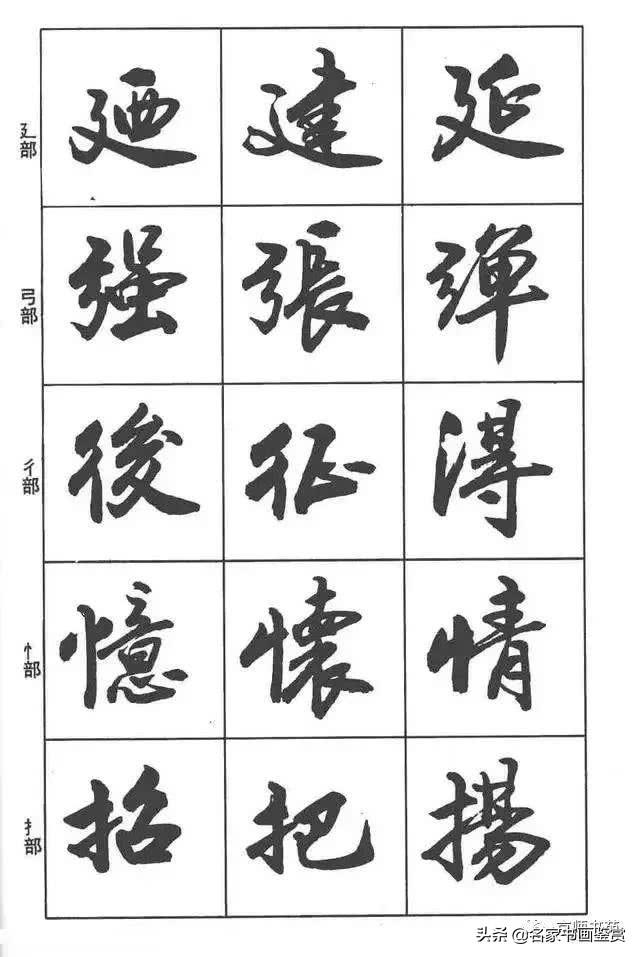 廴部 廼 建 延
弓部 强 張 彈
彳部 後 征 得
忄部 憶 懷 情
扌部 招 把 揚
头条 @名家书画鉴赏